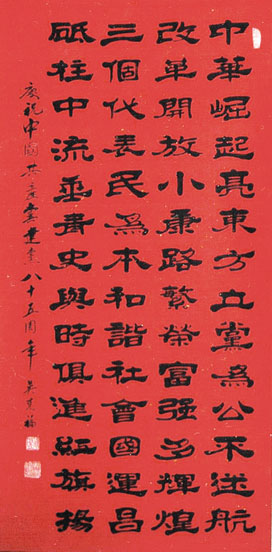 中華崛起亮東方立黨為公不迷航
改革開放小康路繁榮富强多輝煌
三個代表民為本和諧社會國運昌
砥柱中流垂青史與時俱進紅旗揚
慶祝中國共產黨建黨八十五周年